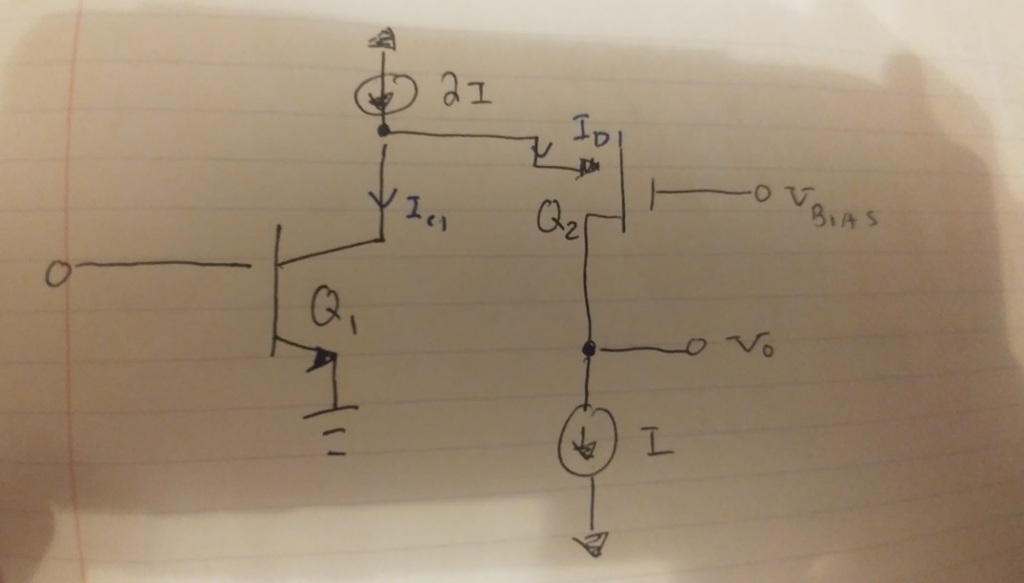 2I
I_D
I_C1
Q_2
V_BIAS
Q_1
V_o
I